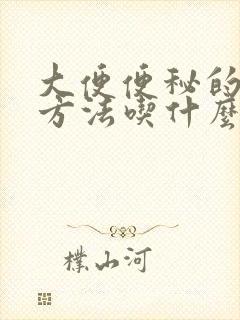 大便便秘的
方法喫什麼
樸山河